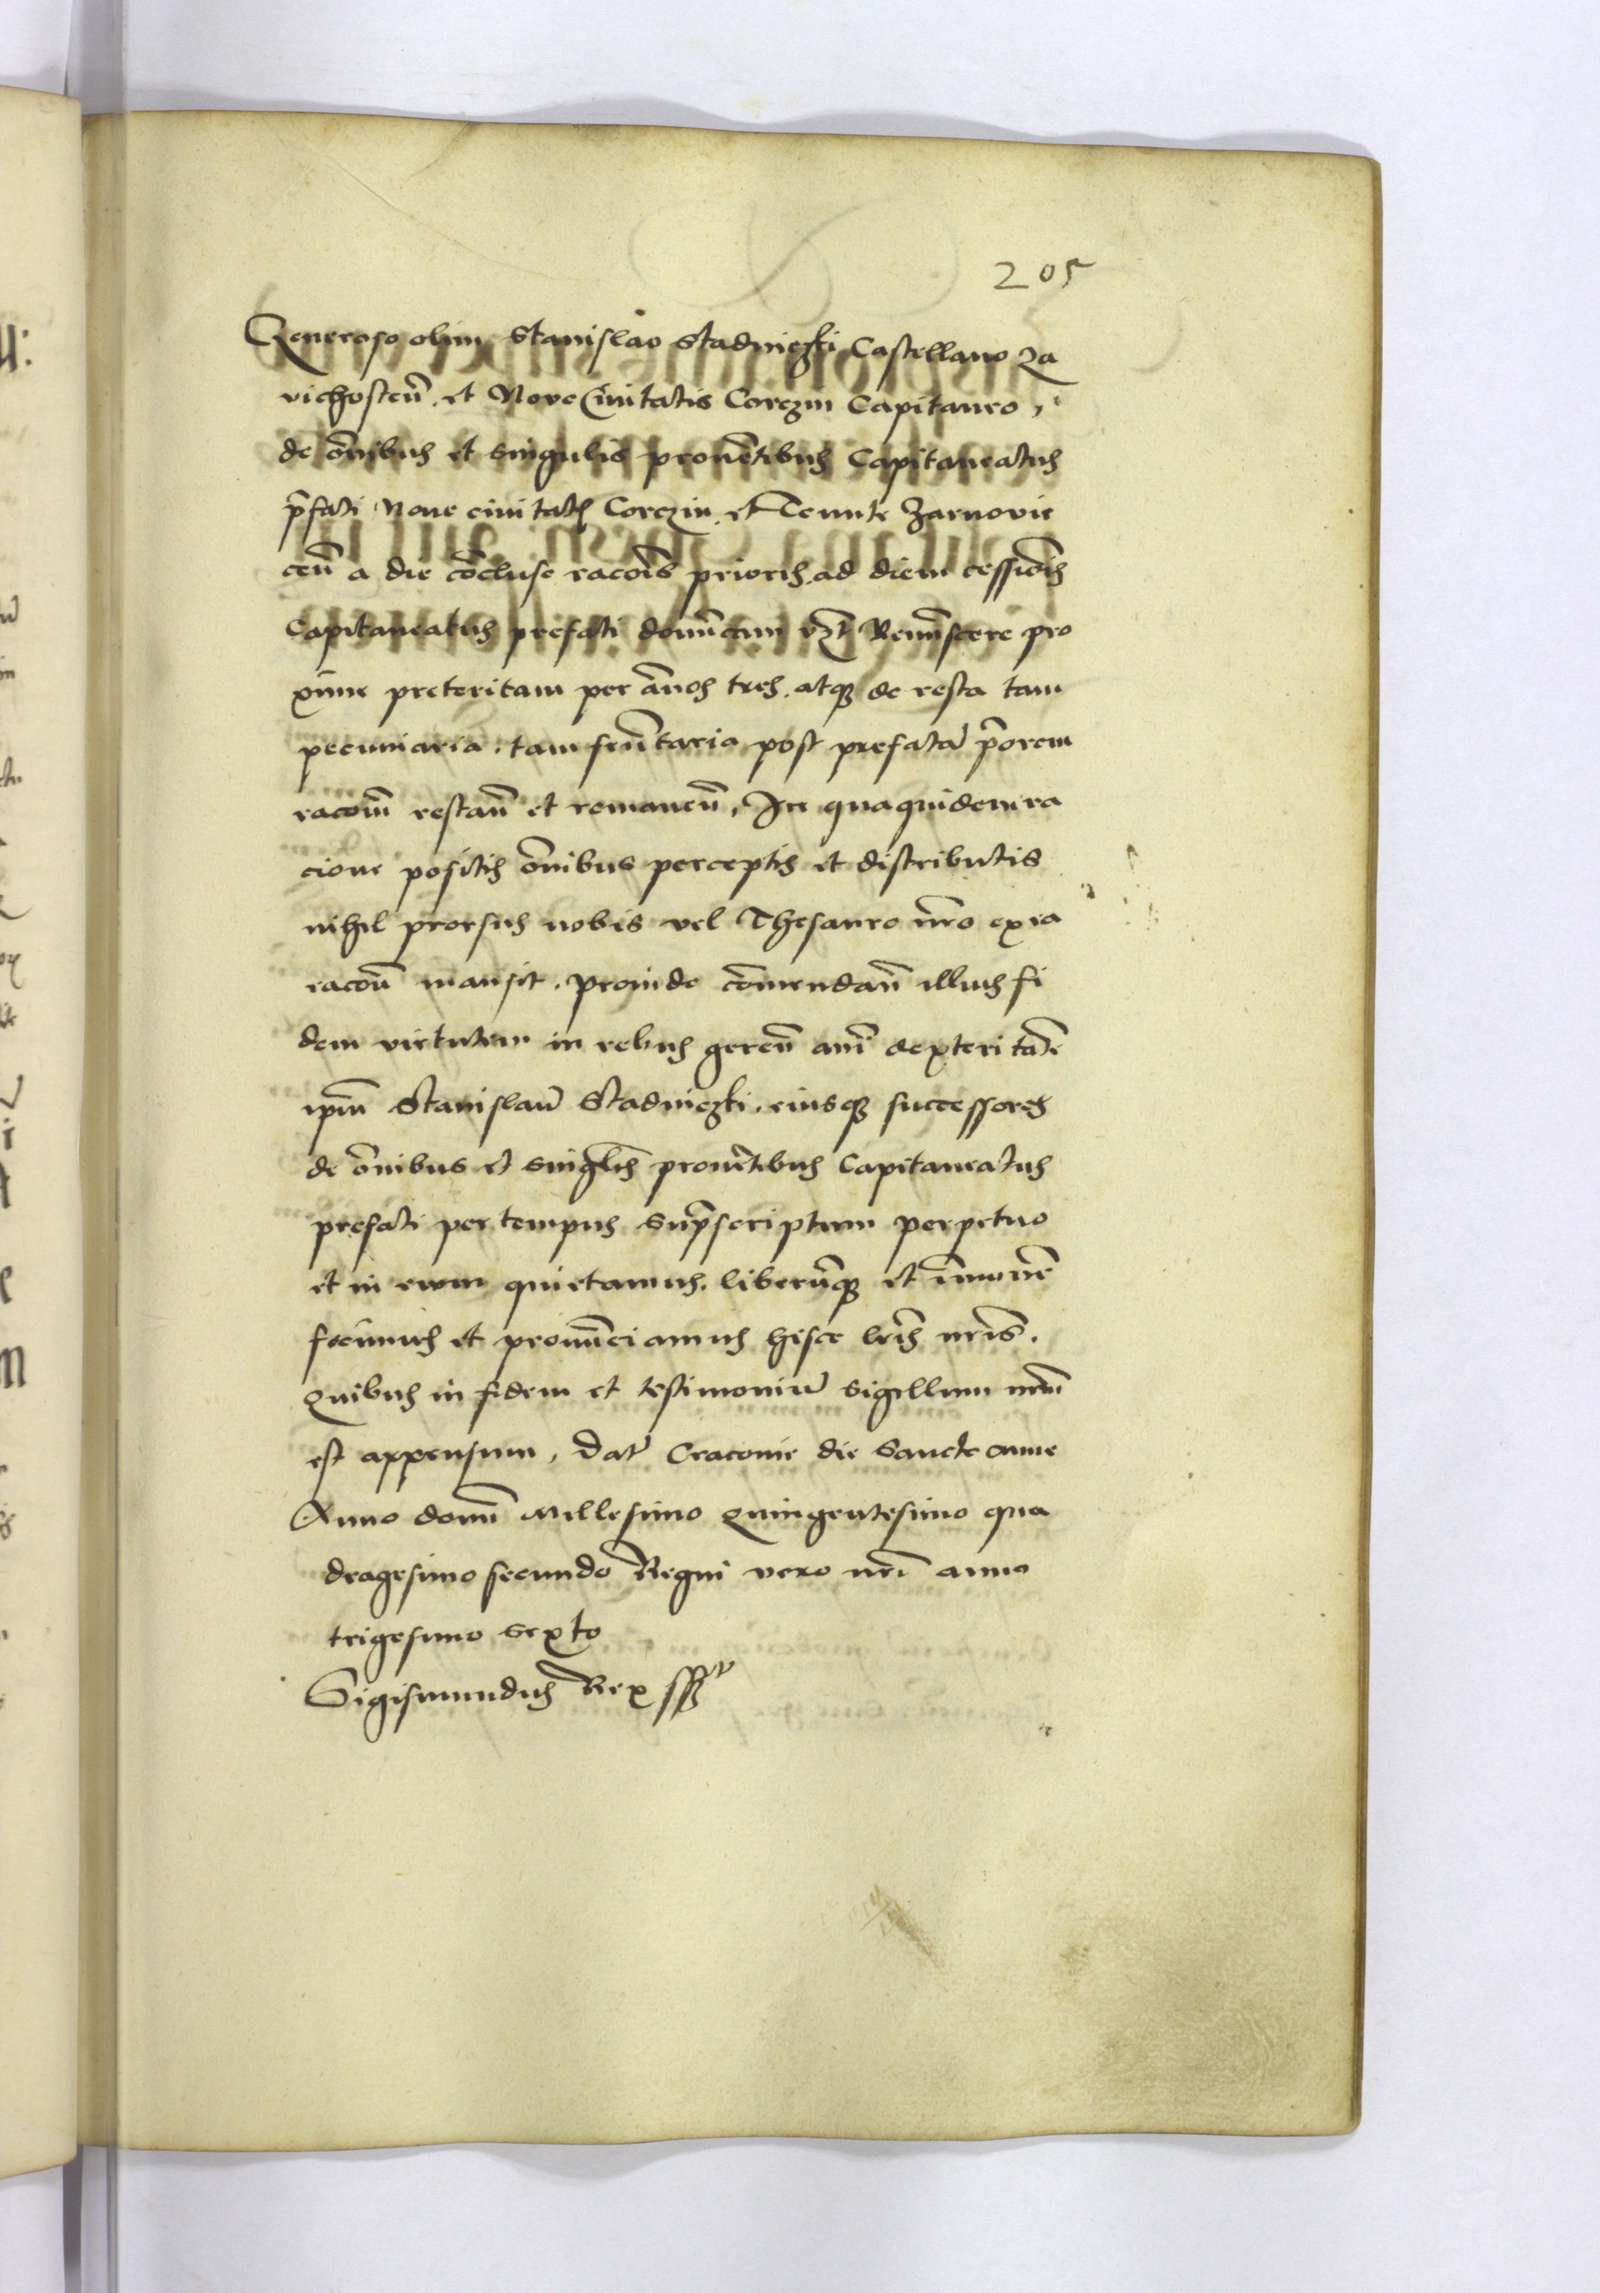 205
Generoso olim Stanislao Stadniczki Castellano Za
vichosteñ. et Nove Civitatis Corczin Capitaneo,
de õnibus et singulis provẽtibus Capitaneatus
p̃fati Nove civitatis Corczin. et Tenute Zarnovie
ceñ a die cõcluse racõis prioris. ad diem cessiõis
Capitaneatus prefati domĩcam vzt Remĩscere pro
xime preteritam per ãnos tres. atqz de resta tam
pecuniaria. tam frumẽtaria post prefatã p̃orem
racõem restañ et remaneñ. In qua quidem ra
cione positis õnibus perceptis et distributis
nihil prorsus nobis vel Thesauro nr̃o ex ea
racõe mansit. proinde cõmendañ illius fi
dem virtutem in rebus gereñ ac dexteritatẽ
ipm̃ Stanislaũ Stadniczki. eiusqz successores
de õnibus et singlis provẽtibus Capitaneatus
prefati per tempus sup̃scriptum perpetuo
et in evum quietamus. liberũqz et ĩmunẽ
facimus et pronũciamus hisce lr̃is nr̃is.
Quibus in fidem et testimoniũ sigillum nr̃m
est appensum. Dat̃ Cracovie die Sancte Anne
Anno domĩ Millesimo Quingentesimo qua
dragesimo secundo Regni vero nr̃i anno
trigesimo sexto
Sigismundus Rex sst